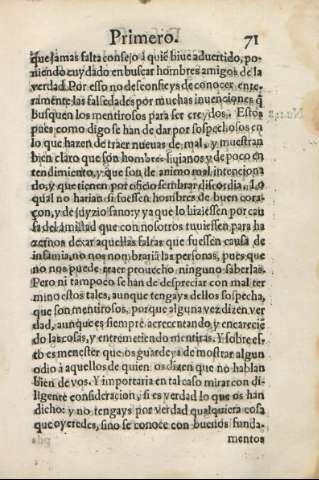 Primero. 71
que jamas falta consejo à quiẽ biue aduertido, po-
niendo cuydado en buscar hombres amigos de la
verdad. Por esso no desconfieys de conocer ente-
ramente las falsedades por muchas inuenciones q̃
busquen los mentirosos para ser creydos. Estos
pues como digo se han de dar por sospechosos en
lo que hazen de traer nueuas de mal, y muestran
bien claro que son hombres liuianos y de poco en
tendimiento, y que son de animo mal intenciona
do, y que tienen por oficio sembrar discordia. Lo
qual no harian si fuessen hombres de buen cora-
çon, y de juyzio sano: ya que lo hiziessen por cau
sa del amistad que con nosotros tuuiessen para ha
zernos dexar aquellas faltas que fuessen causa de
infamia, no nos nombrariã las personas, pues que
no nos puede traer prouecho ninguno saberlas.
Pero ni tampoco se han de despreciar con mal ter
mino estos tales, aunque tengays dellos sospecha,
que son mentirosos, porque alguna vez dizen ver
dad, aunque es siempre acrecentando y encarecié
do las cosas, y entremetiendo mentiras. Y sobre es-
to es menester que os guardeys de mostrar algun
odio à aquellos de quien os dizen que no hablan
bien de vos. Y importaria en tal caso mirar con di-
ligente consideracion, si es verdad lo que os han
dicho: y no tengays por verdad qualquiera cosa
que oyeredes, sino se conoce con buenos funda-
mentos